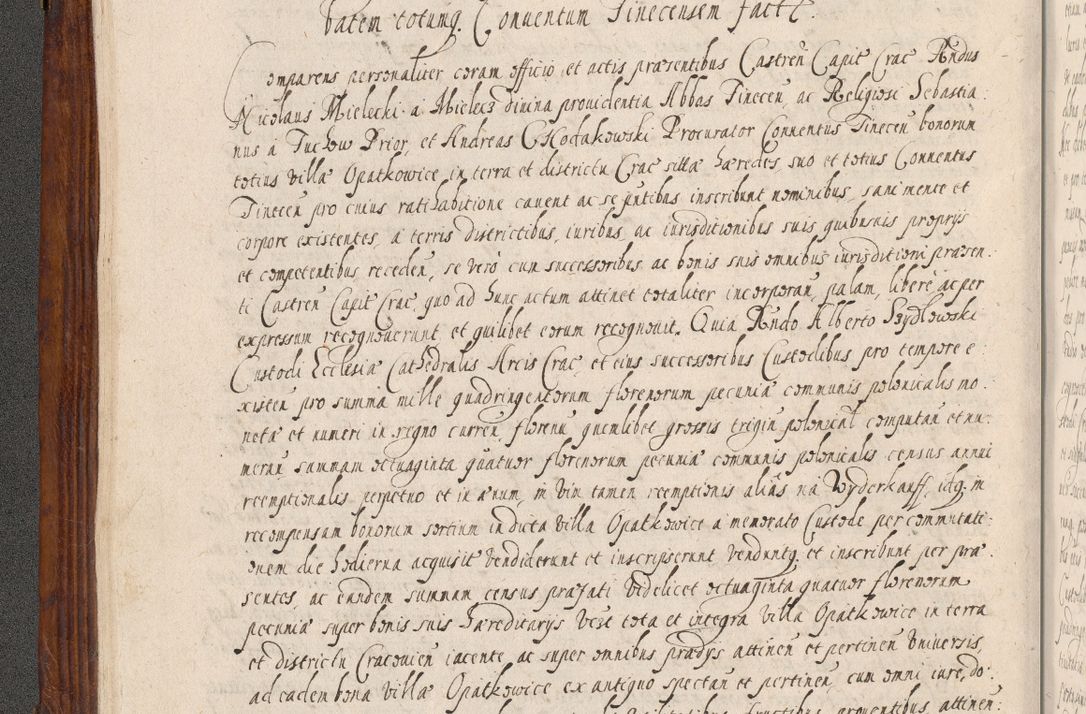 batem totumq. Conuentum Tinecensem fact
Comparens personaliter coram officio et actis præsentibus Castren Capit Crac Rndus
Nicolaus Mielecki a Mielecz diuina prouidentia Abbas Tinecen, ac Religiosi Sebastia:
nus a Tuchow Prior, et Andreas Chodakowski Procurator Conuentus Tinecen bonorum
totius villæ Opatkowice in terra et districtu Crac sitta hæredes, suo et totius Conuentus
Tinecen pro cuius ratihabitione cauent ac se jntibus inscribunt nominibus, sani mente et
corpore existentes, a terris districtibus, iuribus, ac iurisditionibus suis quibusuis proprijs
et competentibus receden, se verò cum successoribus ac bonis suis omnibus iurisditioni præsen:
ti Castren Capit Crac, quo ad hunc actum attinet totaliter incorporan, palam, libere ac per
expressum recognouerunt et quilibet eorum recognouit. Quia Rndo Alberto Szydlowski
Custodi Ecclesiæ Cathedralis Arcis Crac, et eius successoribus Custodibus pro tempore e
xisten pro summa mille quadringentorum florenorum pecuniæ communis polonicalis mo:
netæ et numeri in regno curren, florenu quemlibet grossis trigin polonical computan et nu:
meran summam octuaginta quatuor florenorum pecuniæ communis polonicalis census annui
reemptionalis perpetuo et in æuum, in vim tamen reemptionis aliàs na Wyderkauff, idq. in
recompensam bonorum sortium in dicta villa Opatkowice a memorato Custode per commutati:
onem die hodierna acquisit vendiderunt et inscripserunt venduntq. et inscribunt per præ:
sentes, ac eandem summam census præfati videlicet octuaginta quatuor florenorum
pecuniæ super bonis suis hæreditarijs vcit tota et integra villa Opatkowice in terra
et districtu Cracouien iacente, ac super omnibus prædijs attinen et pertinen vniuersis,
ad eadem bona villæ Opatkowice ex antiquo spectan et pertinen, cum omni iure, do:
fructibus, prouentibus, attinen: